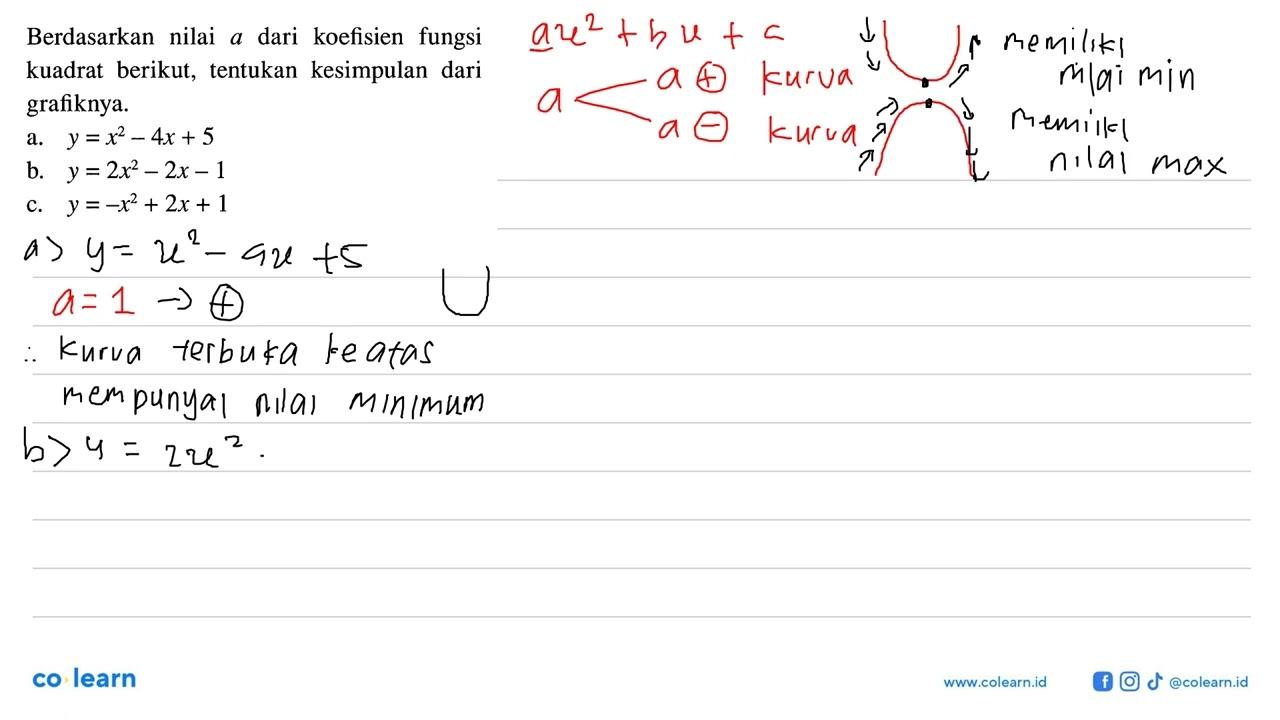 Berdasarkan nilai a dari koefisien fungsi
kuadrat berikut, tentukan kesimpulan dari
grafiknya.
a. y = x² – 4x + 5
b. y = 2x² – 2x – 1
c. y = –x² + 2x + 1
ax² + bx + c
a
a ⊕ kurva
memiliki
nilai min
a ⊖ kurva
memiliki
nilai max
a> y = x² – 4x + 5
a = 1 → ⊕
∴ kurva terbuka ke atas
mempunyai nilai minimum
b> y = 2x² .
co learn
www.colearn.id
@colearn.id